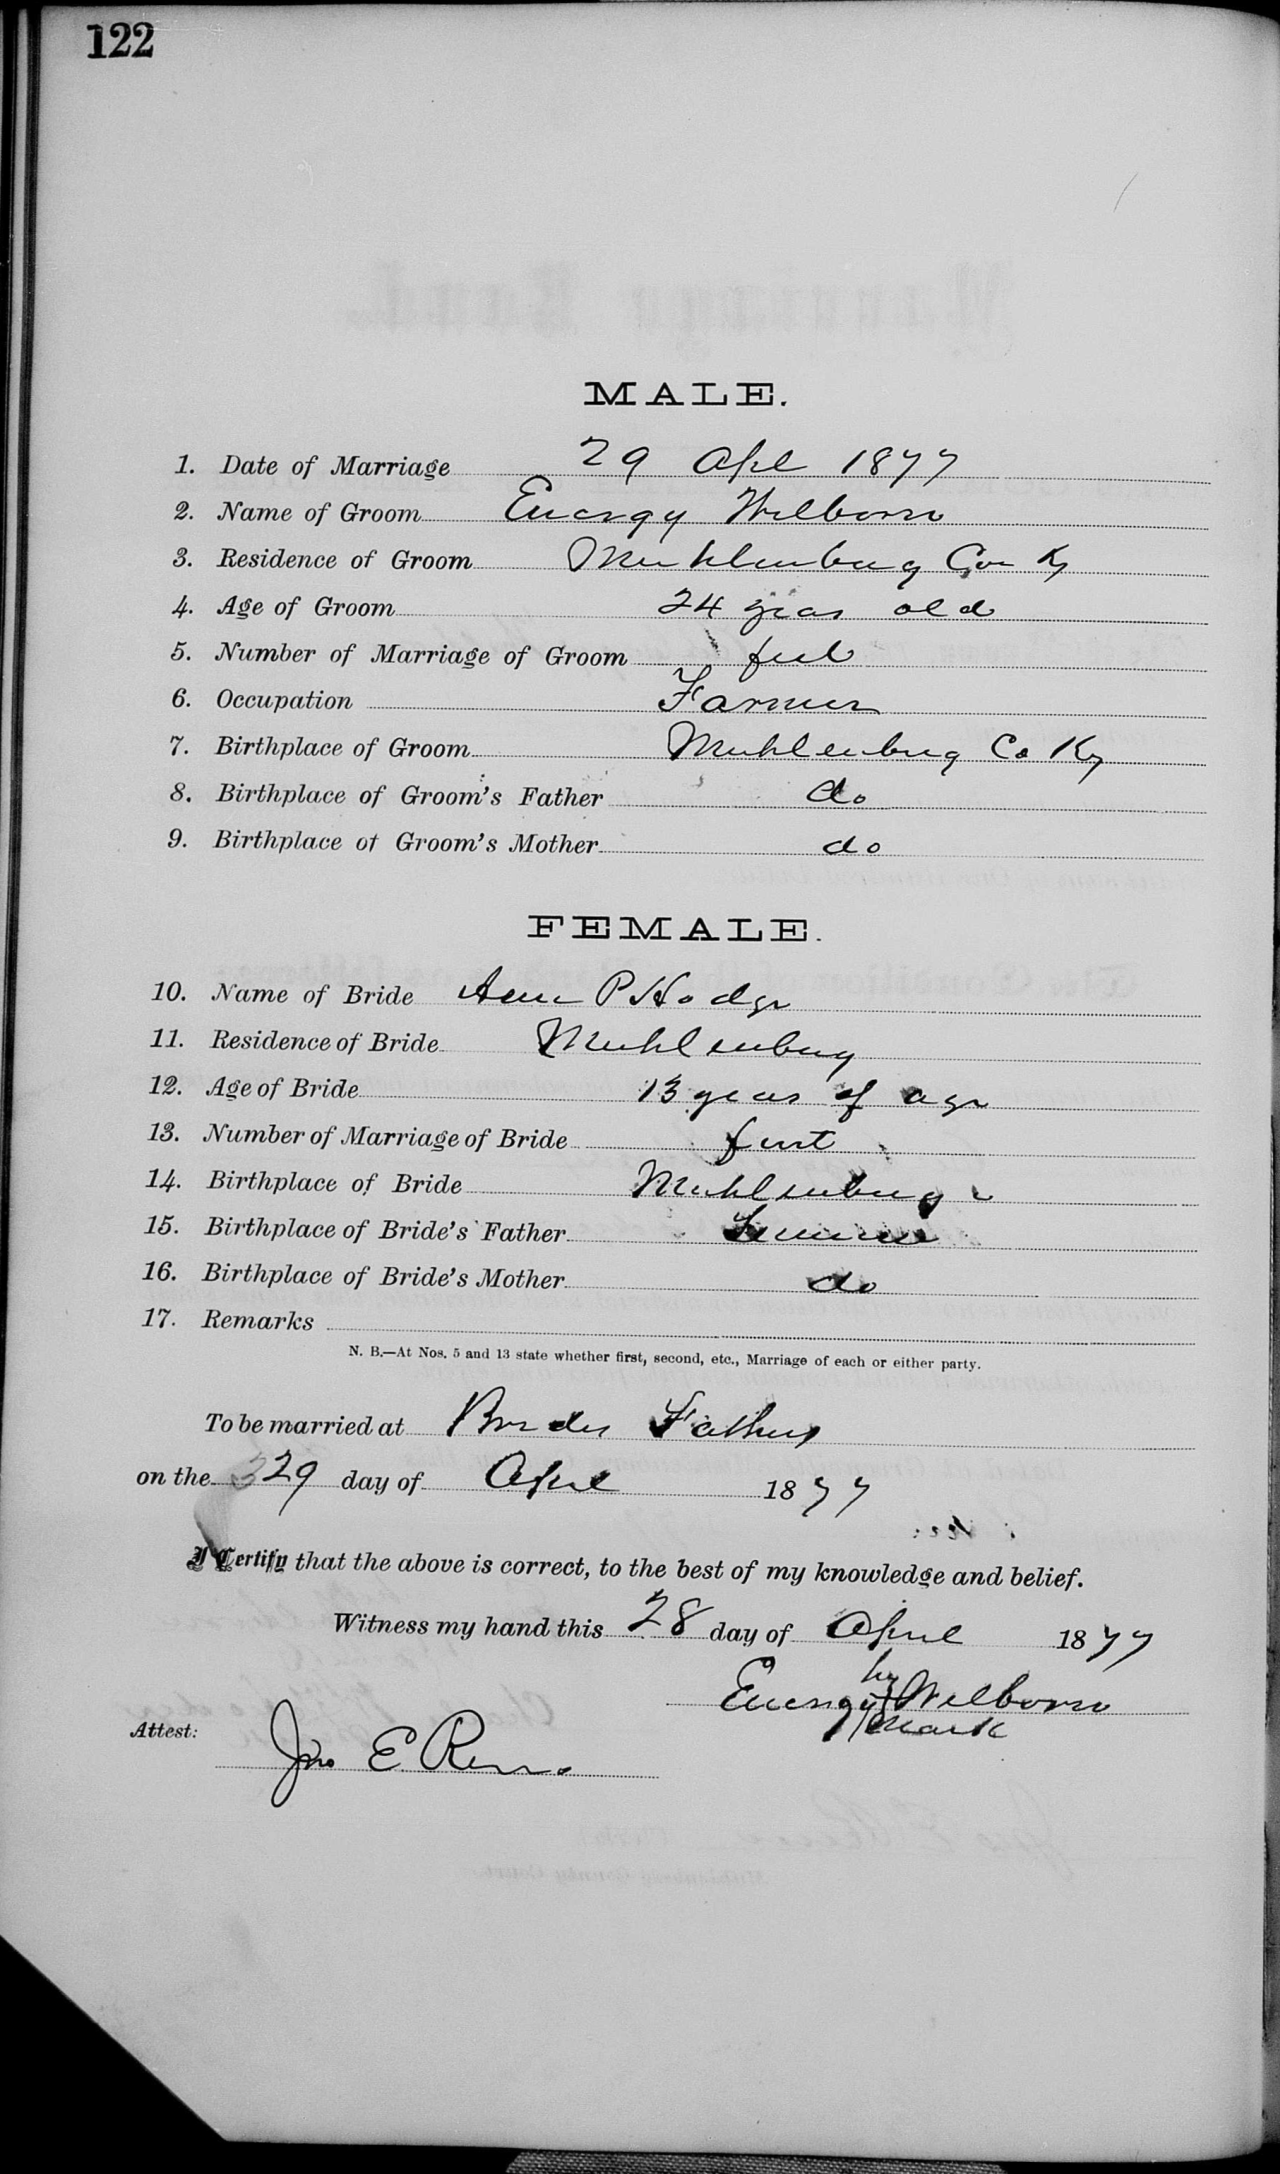 122
MALE.
1. Date of Marriage 29 Apl 1877
2. Name of Groom Energy Welborn
3. Residence of Groom Muhlenburg Co Ky
4. Age of Groom 24 years old
5. Number of Marriage of Groom
6. Occupation Farmer
7. Birthplace of Groom Muhlenburg Co Ky
8. Birthplace of Groom's Father do
9. Birthplace of Groom's Mother do
FEMALE.
10. Name of Bride P Hodge
11. Residence of Bride Muhlenburg
12. Age of Bride 13 years of age
13. Number of Marriage of Bride first
14. Birthplace of Bride Muhlenburg
15. Birthplace of Bride's Father
16. Birthplace of Bride's Mother do
17. Remarks
N. B.—At Nos. 5 and 13 state whether first, second, etc., Marriage of each or either party.
To be married at Brides Fathers
on the 29 day of April 1877
I Certify that the above is correct, to the best of my knowledge and belief.
Witness my hand this 28 day of April 1877
his
Energy X Welborn
mark
Attest: Jno E. Reno